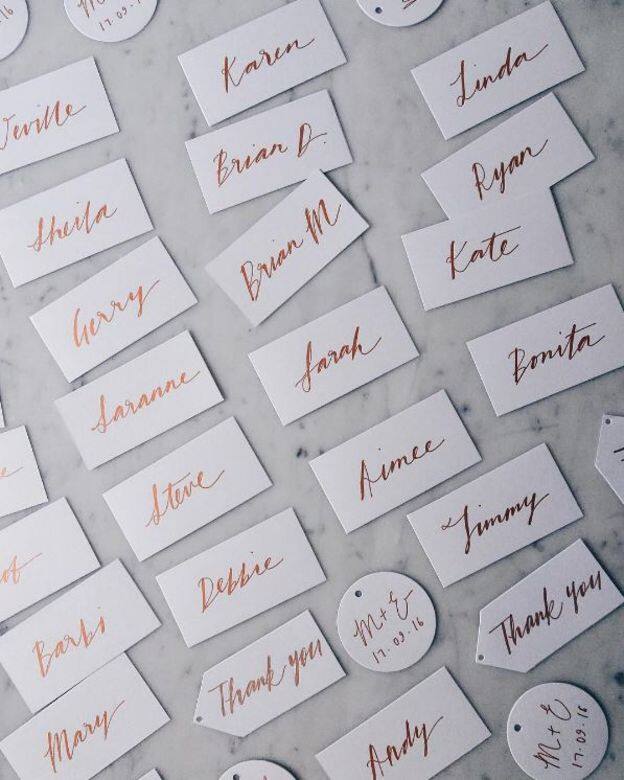 17.09.16
Karen
Linda
Neville
Brian D.
Ryan
Sheila
Brian M
Kate
Gerry
Sarah
Bonita
Saranne
Aimee
Steve
Jimmy
Debbie
M + E
17.09.16
Thank you
Barbi
Thank you
Mary
Andy
M + E
17.09.16